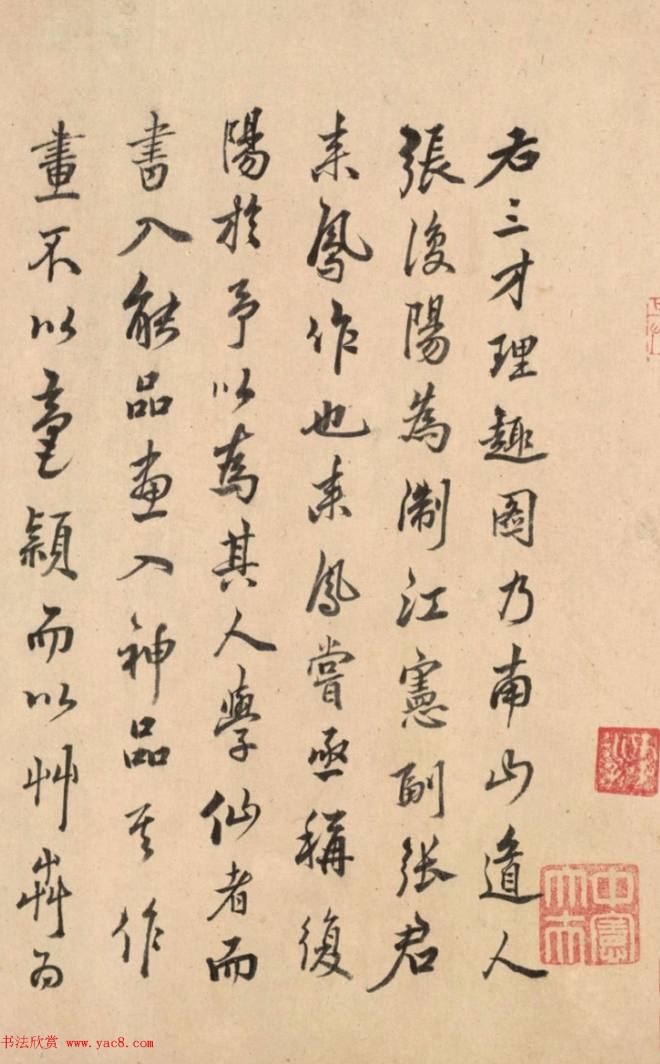 右三才理趣圖乃南山道人
張復陽為淛江憲副張君
来鳳作也来鳳嘗亟稱復
陽於予以為其人學仙者而
書入能品畫入神品其作
畫不以毫穎而以艸莽為
中憲大夫
书法欣赏 www.yac8.com